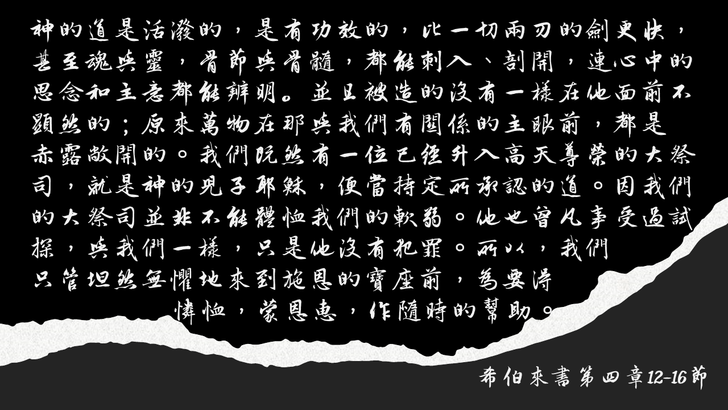 神的道是活潑的，是有功效的，比一切兩刃的劍更快，
甚至魂與靈，骨節與骨髓，都能刺入、剖開，連心中的
思念和主意都能辨明。並且被造的沒有一樣在他面前不
顯然的；原來萬物在那與我們有關係的主眼前，都是
赤露敞開的。我們既然有一位已經升入高天尊榮的大祭
司，就是神的兒子耶穌，便當持定所承認的道。因我們
的大祭司並非不能體恤我們的軟弱。他也曾凡事受過試
探，與我們一樣，只是他沒有犯罪。所以，我們
只管坦然無懼地來到施恩的寶座前，為要得
憐恤，蒙恩惠，作隨時的幫助。
希伯來書第四章12-16節